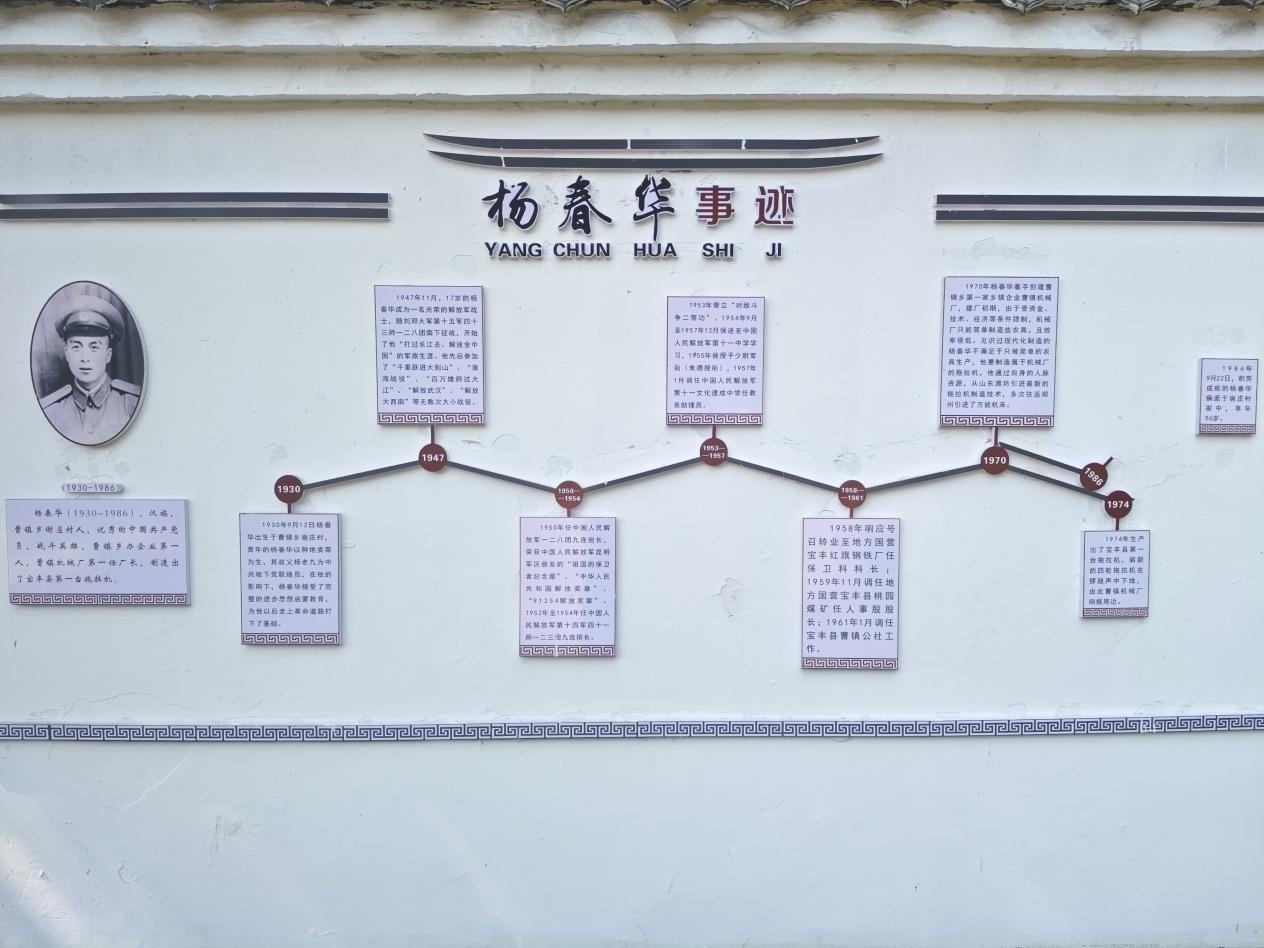 杨春华事迹
YANG CHUN HUA SHI JI
(1930-1986)
杨春华(1930-1986),汉族,
曹镇乡谢庄村人,优秀的中国共产党
员,战斗英雄,曹镇乡办企业第一
人,曹镇机械厂第一任厂长,制造出
了宝丰县第一台拖拉机。
1930
1930年9月12日杨春
华出生于曹镇乡谢庄村,
青年的杨春华以种地卖菜
为生,其叔父杨老九为中
共地下党联络员,在他的
影响下,杨春华接受了完
整的进步思想启蒙教育,
为他以后走上革命道路打
下了基础。
1947年11月,17岁的杨
春华成为一名光荣的解放军战
士,随刘邓大军第十五军四十
三师一二八团南下征战,开始
了他“打过长江去、解放全中
国”的军旅生涯。他先后参加
了“千里跃进大别山”、“淮
海战役”、“百万雄师过大
江”、“解放武汉”、“解放
大西南”等无数次大小战役。
1947
1950—
—1954
1950年任中国人民解
放军一二八团九连班长,
荣获中国人民解放军昆明
军区颁发的“祖国的保卫
者纪念章”、“中华人民
共和国解放奖章”、
“91254解放奖章”,
1952年至1954年任中国人
民解放军第十四军四十一
师一二三团九连排长。
1953年荣立“对敌斗
争二等功”,1954年9月
至1957年12月保送至中国
人民解放军第十一中学学
习,1955年被授予少尉军
衔(朱德授衔),1957年
1月调任中国人民解放军
第十一文化速成中学任教
务助理员。
1953—
—1957
1958—
—1961
1958年响应号
召转业至地方国营
宝丰红旗钢铁厂任
保卫科科长;
1959年11月调任地
方国营宝丰县桃园
煤矿任人事股股
长;1961年1月调任
宝丰县曹镇公社工
作。
1970年杨春华着手创建曹
镇乡第一家乡镇企业曹镇机械
厂,建厂初期,由于受资金、
技术、经济等条件限制,机械
厂只能简单制造些农具,且效
率很低。见识过现代化制造的
杨春华不满足于只做简单的农
具生产,他要制造属于机械厂
的拖拉机,他通过自身的人脉
资源,从山东潍坊引进最新的
拖拉机制造技术,多次往返郑
州引进了万能机床。
1970
1974
1974年生产
出了宝丰县第一
台拖拉机,崭新
的四轮拖拉机在
锣鼓声中下线,
由此曹镇机械厂
响振周边。
1986
1986年
9月22日,积劳
成疾的杨春华
病逝于谢庄村
家中,享年
56岁。